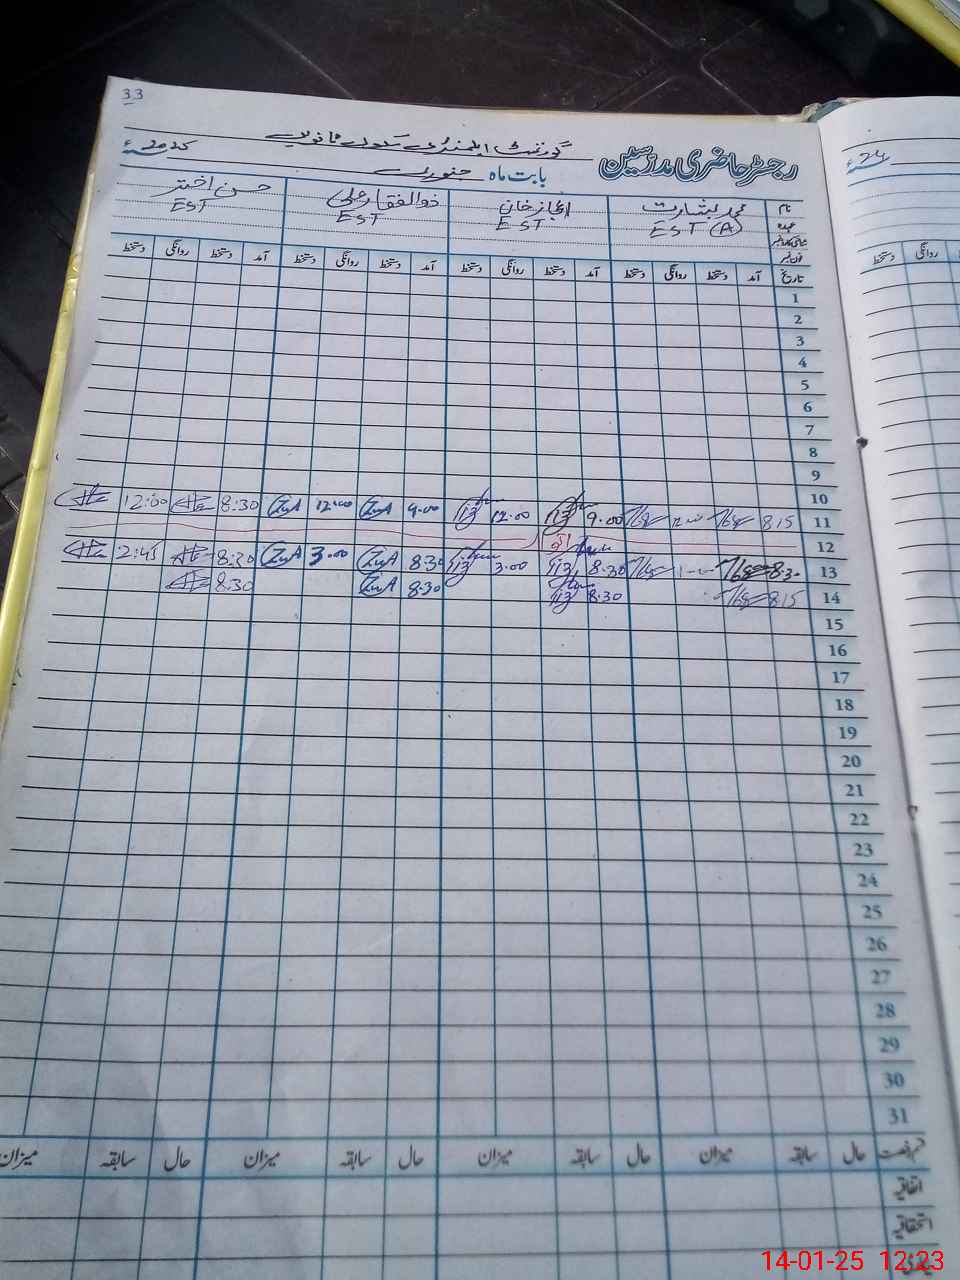 33
گورنمنٹ ایلیمنٹری سکول
رجسٹر حاضری مدرسین
بابت ماہ جنوری 2025ء
نام محمد بشارت اعجاز خان ذوالفقار علی حسن اختر
عہدہ EST (A) EST EST EST
شناختی کارڈ نمبر
فون نمبر
تاریخ آمد دستخط روانگی دستخط آمد دستخط روانگی دستخط آمد دستخط روانگی دستخط آمد دستخط روانگی دستخط
1
2
3
4
5
6
7
8
9
10
11 8:15 9.00 12.00 9.00 ZuA 12:00 ZuA 8:30 12:00
12
13 8:30 8.30 3.00 8:30 ZuA 3.00 ZuA 8:30 2:45
14 8:15 8.30 8:30 ZuA 8:30
15
16
17
18
19
20
21
22
23
24
25
26
27
28
29
30
31
قسم رخصت حال سابقہ میزان حال سابقہ میزان حال سابقہ میزان حال سابقہ میزان
اتفاقیہ
استحقاقیہ
24ء
روانگی دستخط
14-01-25 12:23